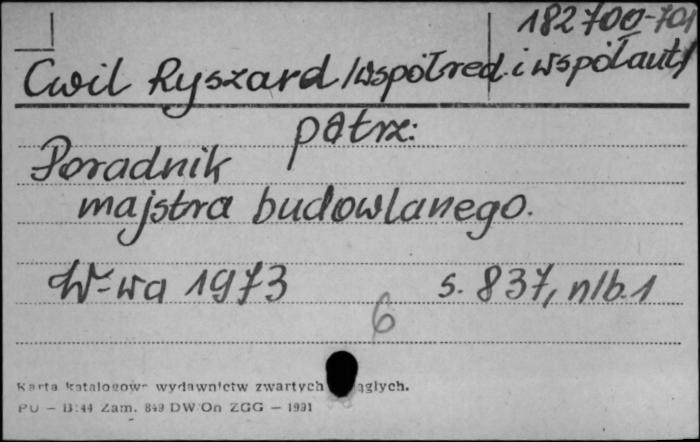 182700-701
Cwil Ryszard /współred. i współaut/
patrz:
Poradnik
majstra budowlanego.
W-wa 1973 s. 837, nlb. 1
6
Karta katalogow- wydawnictw zwartych ągłych.
PU – Zam. 849 DW On ZGG – 1991